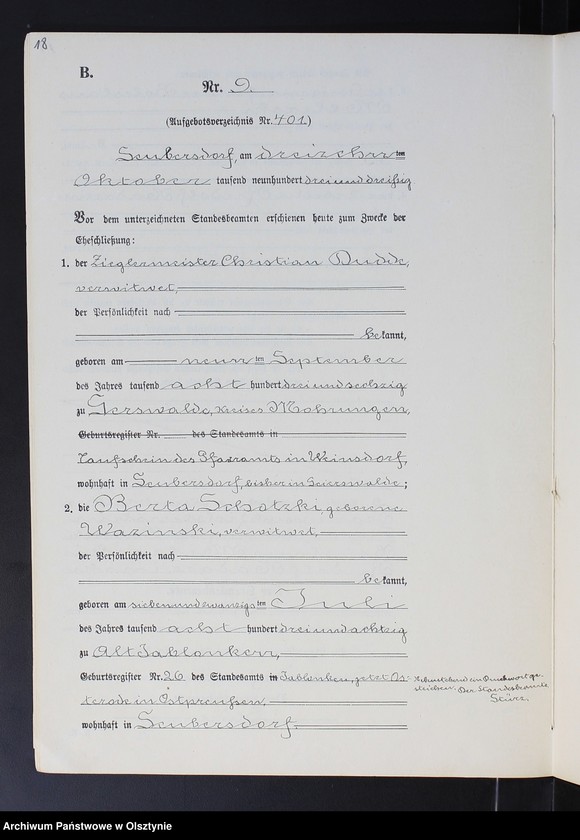 18
B.
Nr. 9.
(Aufgebotsverzeichnis Nr. 401)
Seubersdorf, am dreizehnten
Oktober tausend neunhundert dreiunddreißig
Vor dem unterzeichneten Standesbeamten erschienen heute zum Zwecke der
Eheschließung:
1. der Zieglermeister Christian Budde,
verwitwet,
der Persönlichkeit nach
bekannt,
geboren am neunten September
des Jahres tausend acht hundert dreiundsechzig
zu Gerswalde, Kreises Mohrungen,
Geburtsregister Nr. des Standesamts in
Taufschein des Pfarramts in Weinsdorf,
wohnhaft in Seubersdorf, bisher in ;
2. die Berta Schatzki, geborene
Wazinski, verwitwet,
der Persönlichkeit nach
bekannt,
geboren am siebenundzwanzigsten Juli
des Jahres tausend acht hundert dreiundachtzig
zu Alt Jablonken,
Geburtsregister Nr. 26 des Standesamts in Jablonken, jetzt Os-
terode in Ostpreußen,
wohnhaft in Seubersdorf.
Nebenstehend ein Druckwort ge-
strichen. Der Standesbeamte
Archiwum Państwowe w Olsztynie